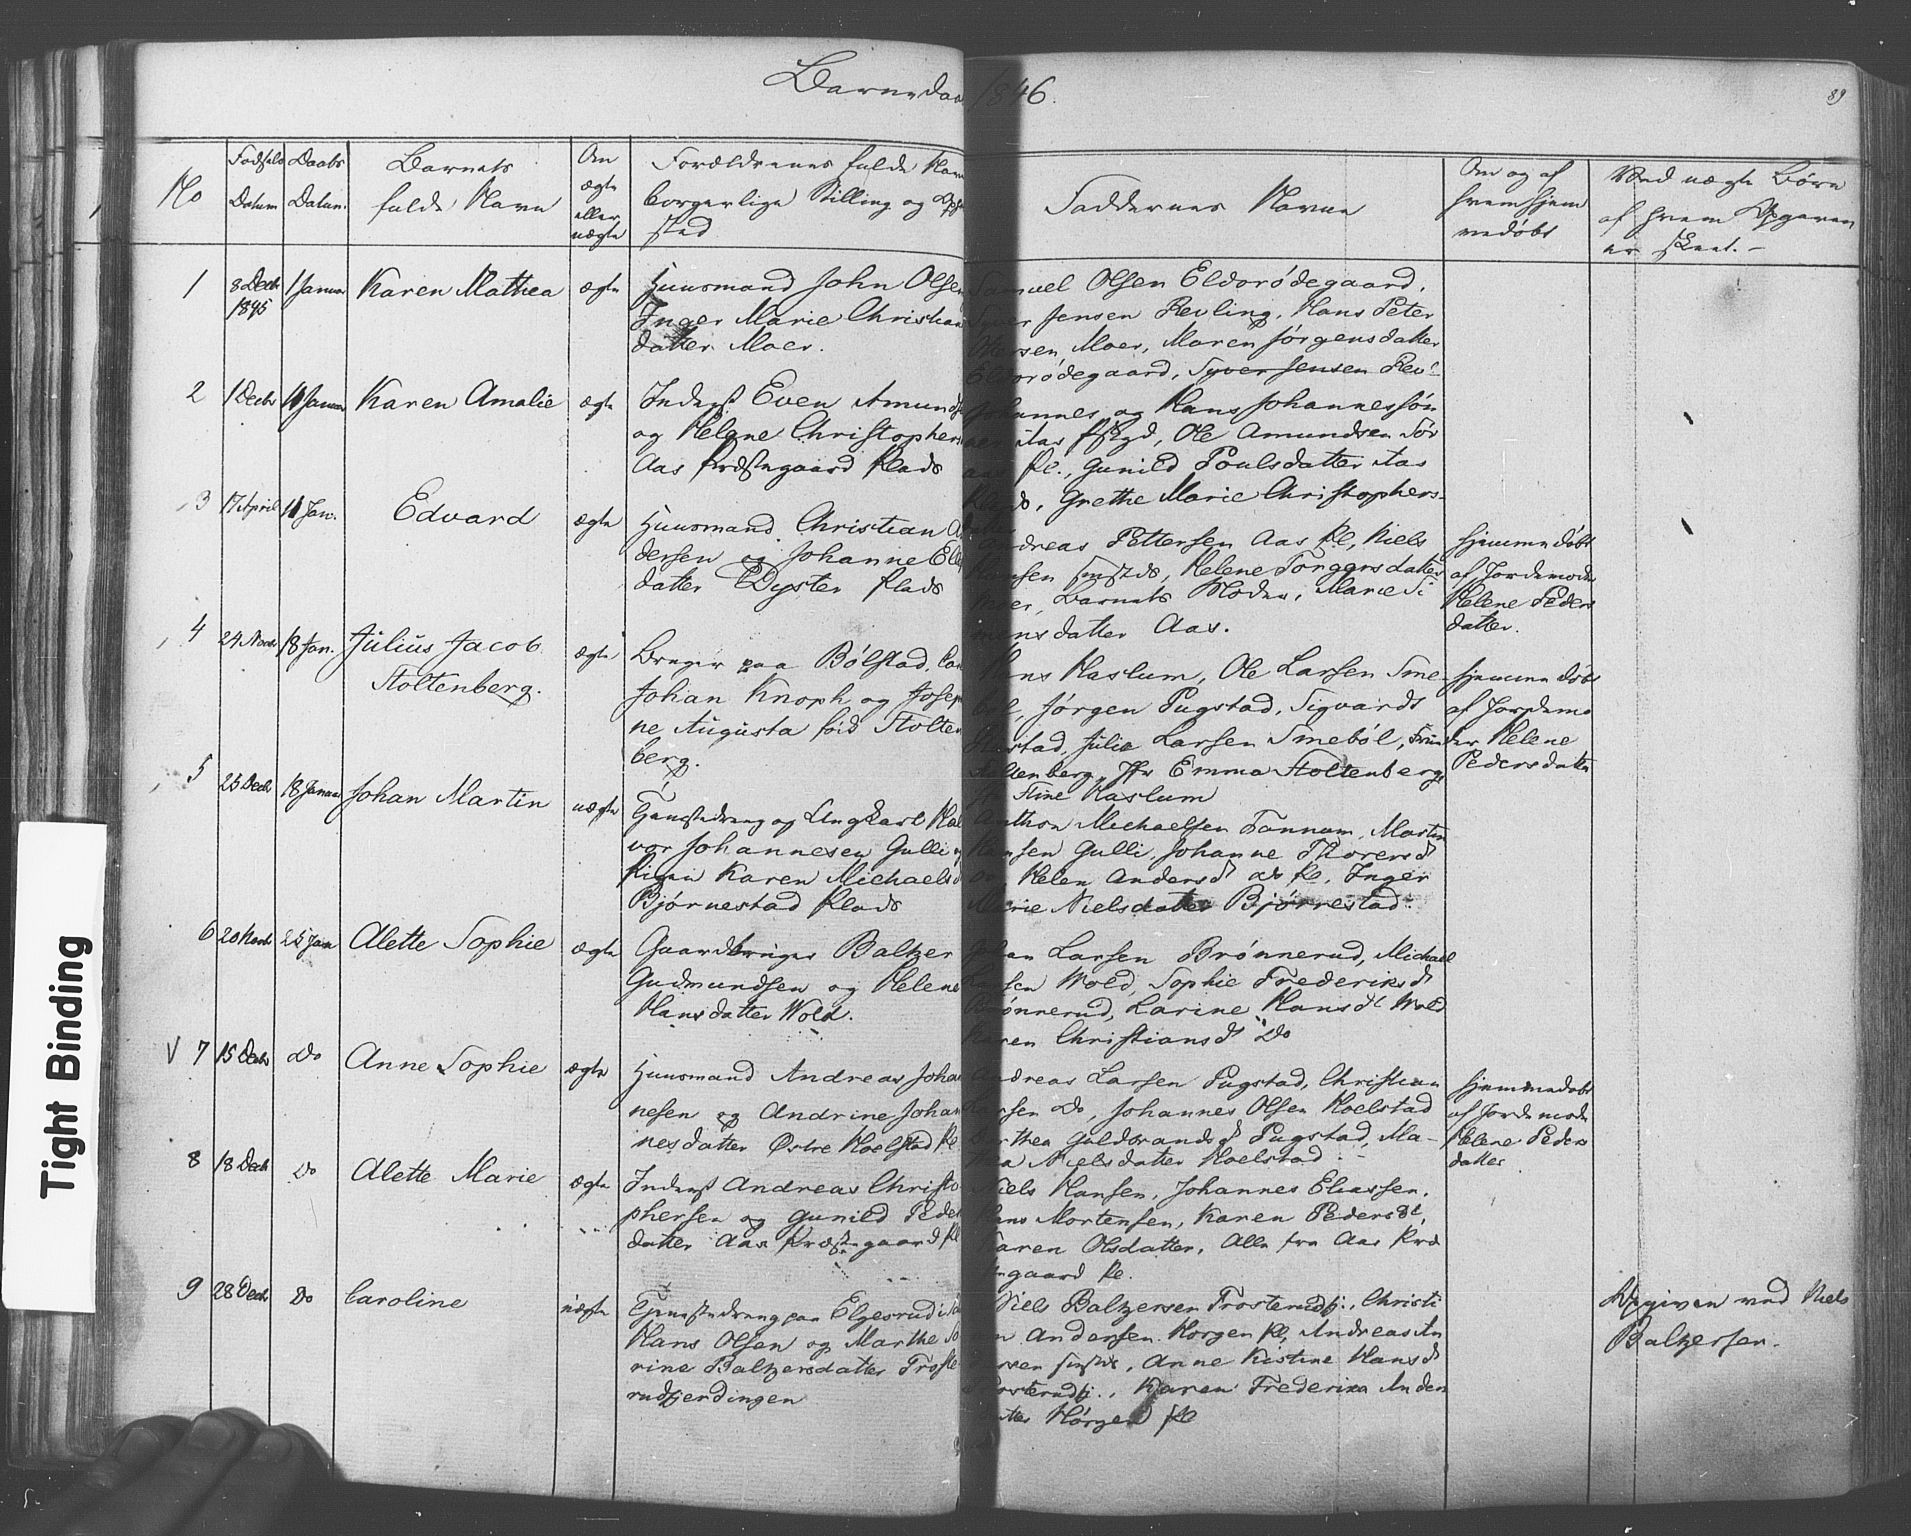 Barnedaab 1846.
89
No
Fødsels
Datum
Daabs
Datum.
Barnets
fulde Navn
Om
ægte
eller
uægte
Forældrenes fulde Navn
borgerlige Stilling og
sted
Faddernes Navne
Om og af
hvem hjem
medøbt
Ved uægte Børn
af hvem Opgaven
er skeet. –
1
8 Decbr
1845
1 Januar
Karen Mathea
ægte
Huusmand John Olsen
Inger Marie Christians
datter Moer.
Samuel Olsen Eldorødegaard,
Syver Jensen Revling, Hans Peter
Moer, Maren Jørgensdatter
Eldorødegaard, Syver Jensen Rev
2
1 Decbr
11 Januar
Karen Amalie
ægte
Inderst Even Amundsen
og Helene Christophers
Aas Præstegaard Plads
Johannes og Hans Johannessøn
Aas Ole Amundsen Sør
aas Pl., Gunild Poulsdatter Aas
Plads, Grethe Marie Christophers-
3
17 April
11 Jan.
Edvard
ægte
Huusmand Christian An
dersen og Johanne
datter Dyster Plads
Andreas Pettersen Aas Pl, Niels
Hansen Helene Torgersdatter
Moer, Barnets Moder, Marie Si
mensdatter Aas.
hjemmedøbt
af Jordemoder
Helene Peders
datter.
4
24 Novbr
18 Jan.
Julius Jacob
Stoltenberg.
ægte
Bruger paa Bølstad,
Johan Knoph og Josephi
ne Augusta fød Stolten
berg.
Hans Haslum, Ole Larsen Sme-
bøl, Jørgen Pugstad, Sigvardt
Julie Larsen Smebøl, Fru
Stoltenberg, Jfr Emma Stoltenberg,
Stine Haslum
hjemmedøbt
af Jordemo
der Helene
Pedersdatter
5
25 Decbr
18 Januar
Johan Martin
uægte
Tjenestedreng og Ungkarl Hal
vor Johannesen Gulli og
Pigen Karen Michaelsd
Bjørnestad Plads
Anthon Michaelsen Tannum, Martin
Hansen Gulli, Johanne Thoresd
Helen Andersd do Pl, Inger
Marie Nielsdatter Bjørnestad.
6
20 Novbr
25 Jan
Alette Sophie
ægte
Gaardbruger Baltzer
Gudmundsen og Helene
Hansdatter Wold.
Johan Larsen Brønnerud, Michael
Larsen Wold, Sophie Frederiksd
Brønnerud, Larine Hansdt Wold
Karen Christiansdt Do
V 7
15 Decbr
Do
Anne Sophie
ægte
Huusmand Andreas Johan
nesen og Andrine Johan
nesdatter Østre Holstad Pl
Andreas Larsen Pugstad, Christian
Larsen do, Johannes Olsen Hoelstad
Dorthea Guldbrandsdt Pugstad, Ma-
Nielsdatter Hoelstad
hjemmedøbt
af Jordemoder
Helene Peders
datter
8
18 Decbr
Do
Alette Marie
ægte
Inderst Andreas Christo
phersen og Gunild Peders
datter Aas Præstegaard Pl
Niels Hansen, Johannes Eliassen,
Hans Mortensen, Karen Pedersdt,
Karen Olsdatter, Alle fra Aas Præ
stegaard Pl.
9
28 Decbr
Do
Caroline
uægte
Tjenestedreng paa Elgesrud
Hans Olsen og Marthe So
rine Baltzersdatter Froste
rudfjerdingen
Niels Baltzersen Frosterudfj., Christi
an Andersen Horgen Pl, Andreas An
dersen Anne Kistine Hansdt
Frosterudfj., Karen Frederika Anders
datter Hørgen Pl
Opgiven ved Niels
Baltzersen.
Tight Binding